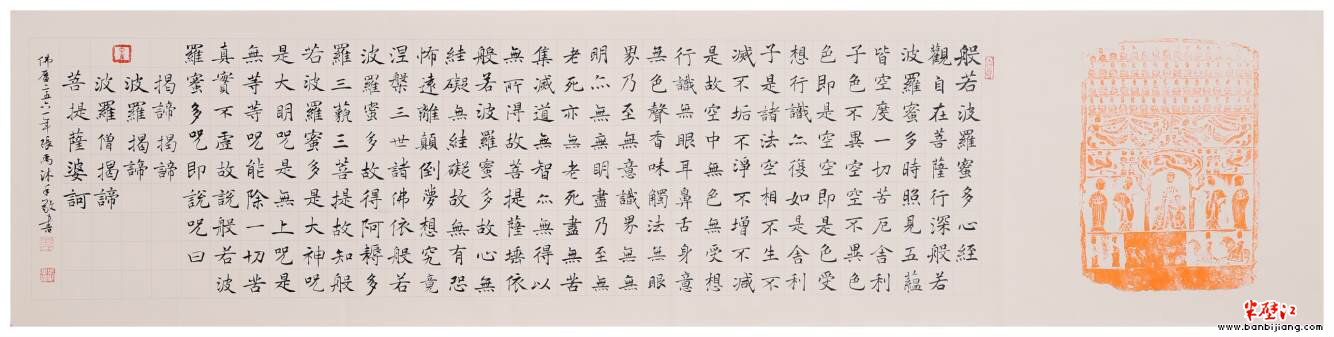 般若波羅蜜多心經
觀自在菩薩行深般若
波羅蜜多時照見五蘊
皆空度一切苦厄舍利
子色不異空空不異色
色即是空空即是色受
想行識亦復如是舍利
子是諸法空相不生不
滅不垢不淨不增不減
是故空中無色無受想
行識無眼耳鼻舌身意
無色聲香味觸法無眼
界乃至無意識界無無
明亦無無明盡乃至無
老死亦無老死盡無苦
集滅道無智亦無得以
無所得故菩提薩埵依
般若波羅蜜多故心無
絓礙無絓礙故無有恐
怖遠離顛倒夢想究竟
涅槃三世諸佛依般若
波羅蜜多故得阿耨多
羅三藐三菩提故知般
若波羅蜜多是大神呪
是大明呪是無上呪是
無等等呪能除一切苦
真實不虛故說般若波
羅蜜多呪即說呪曰
揭諦揭諦
波羅揭諦
波羅僧揭諦
菩提薩婆訶
佛曆二五六一年張禹沐手敬書
半壁江
www.banbijiang.com